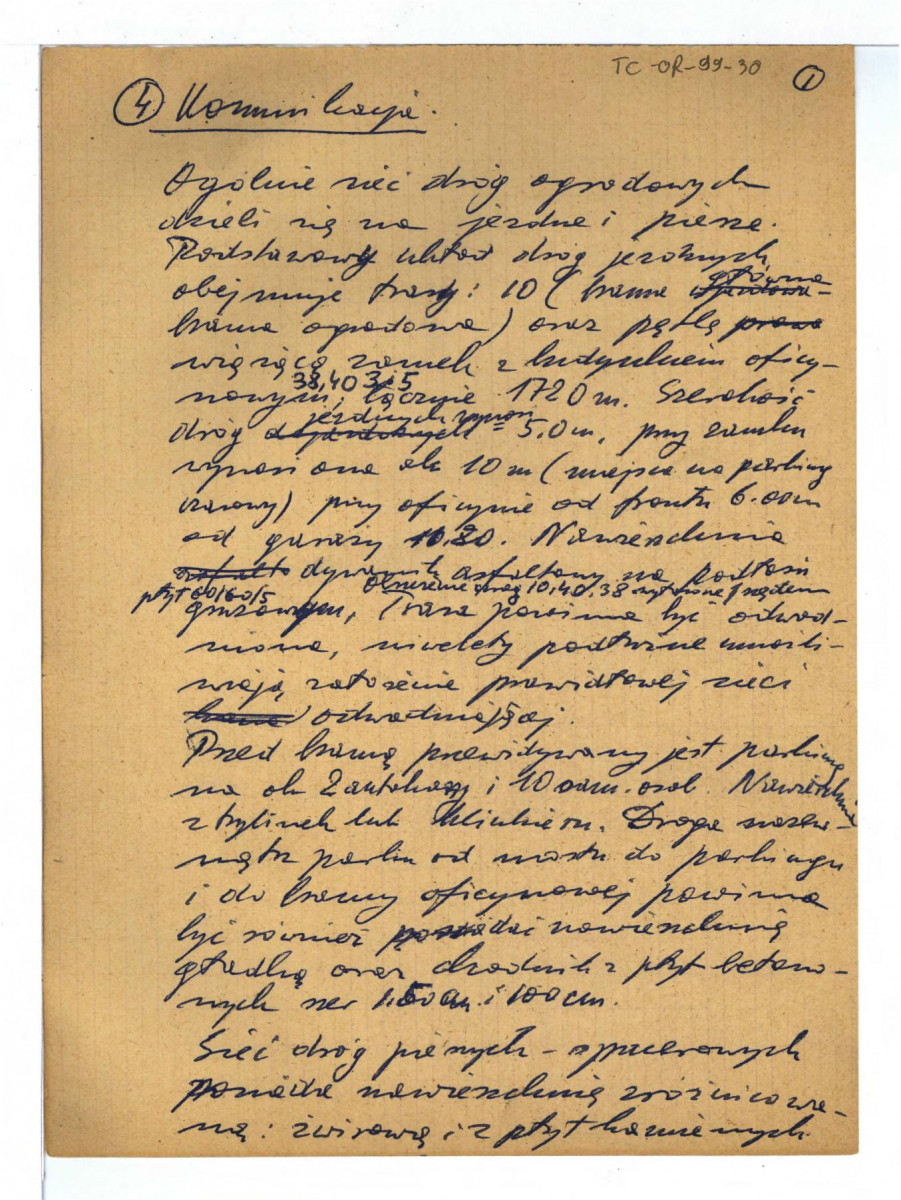 TC-OR-99-30 1
4 Komunikacja.
Ogólnie sieć dróg ogrodowych
dzieli się na jezdne i piesze.
Podstawowy układ dróg jezdnych
główna
obejmuje trasy: 10 (brama wjazdowa -
brama ogrodowa) oraz pętlę prawo
wiążącą zamek z budynkiem oficy-
38,40 3 i 5
nowym; łącznie 1720 m. Szerokość
jezdnych wynosi
dróg dojazdowych = 5.0m, przy zamku
wynosi ona ok 10 m (miejsca na parking
czasowy) przy oficynie od frontu 6.00m
od garaży 10.20. Nawierzchnia
asfalto dywanik asfaltowy na podłożu
płyt 60/60/5 Obrzeżenie dróg 10,40,38 rzędem
gruzowym, Trasa powinna być odwod-
niona, niwelety podłużne umożli-
wiają założenie prawidłowej sieci
odwadniającej.
Przed bramą przewidywany jest parking
na ok 2 autokary i 10 sam. osob. Nawierzchnia
z trylinek lub klinkieru. Droga zewn-
nątrz parku od mostu do parkingu
i do bramy oficynowej powinna
być również posiadać nawierzchnię
gładką oraz chodnik z płyt betono-
wych szer 1.50cm. i 100cm.
Sieć dróg pieszych - spacerowych
posiada nawierzchnię zróżnicowa-
ną: żwirową i z płyt kamiennych.